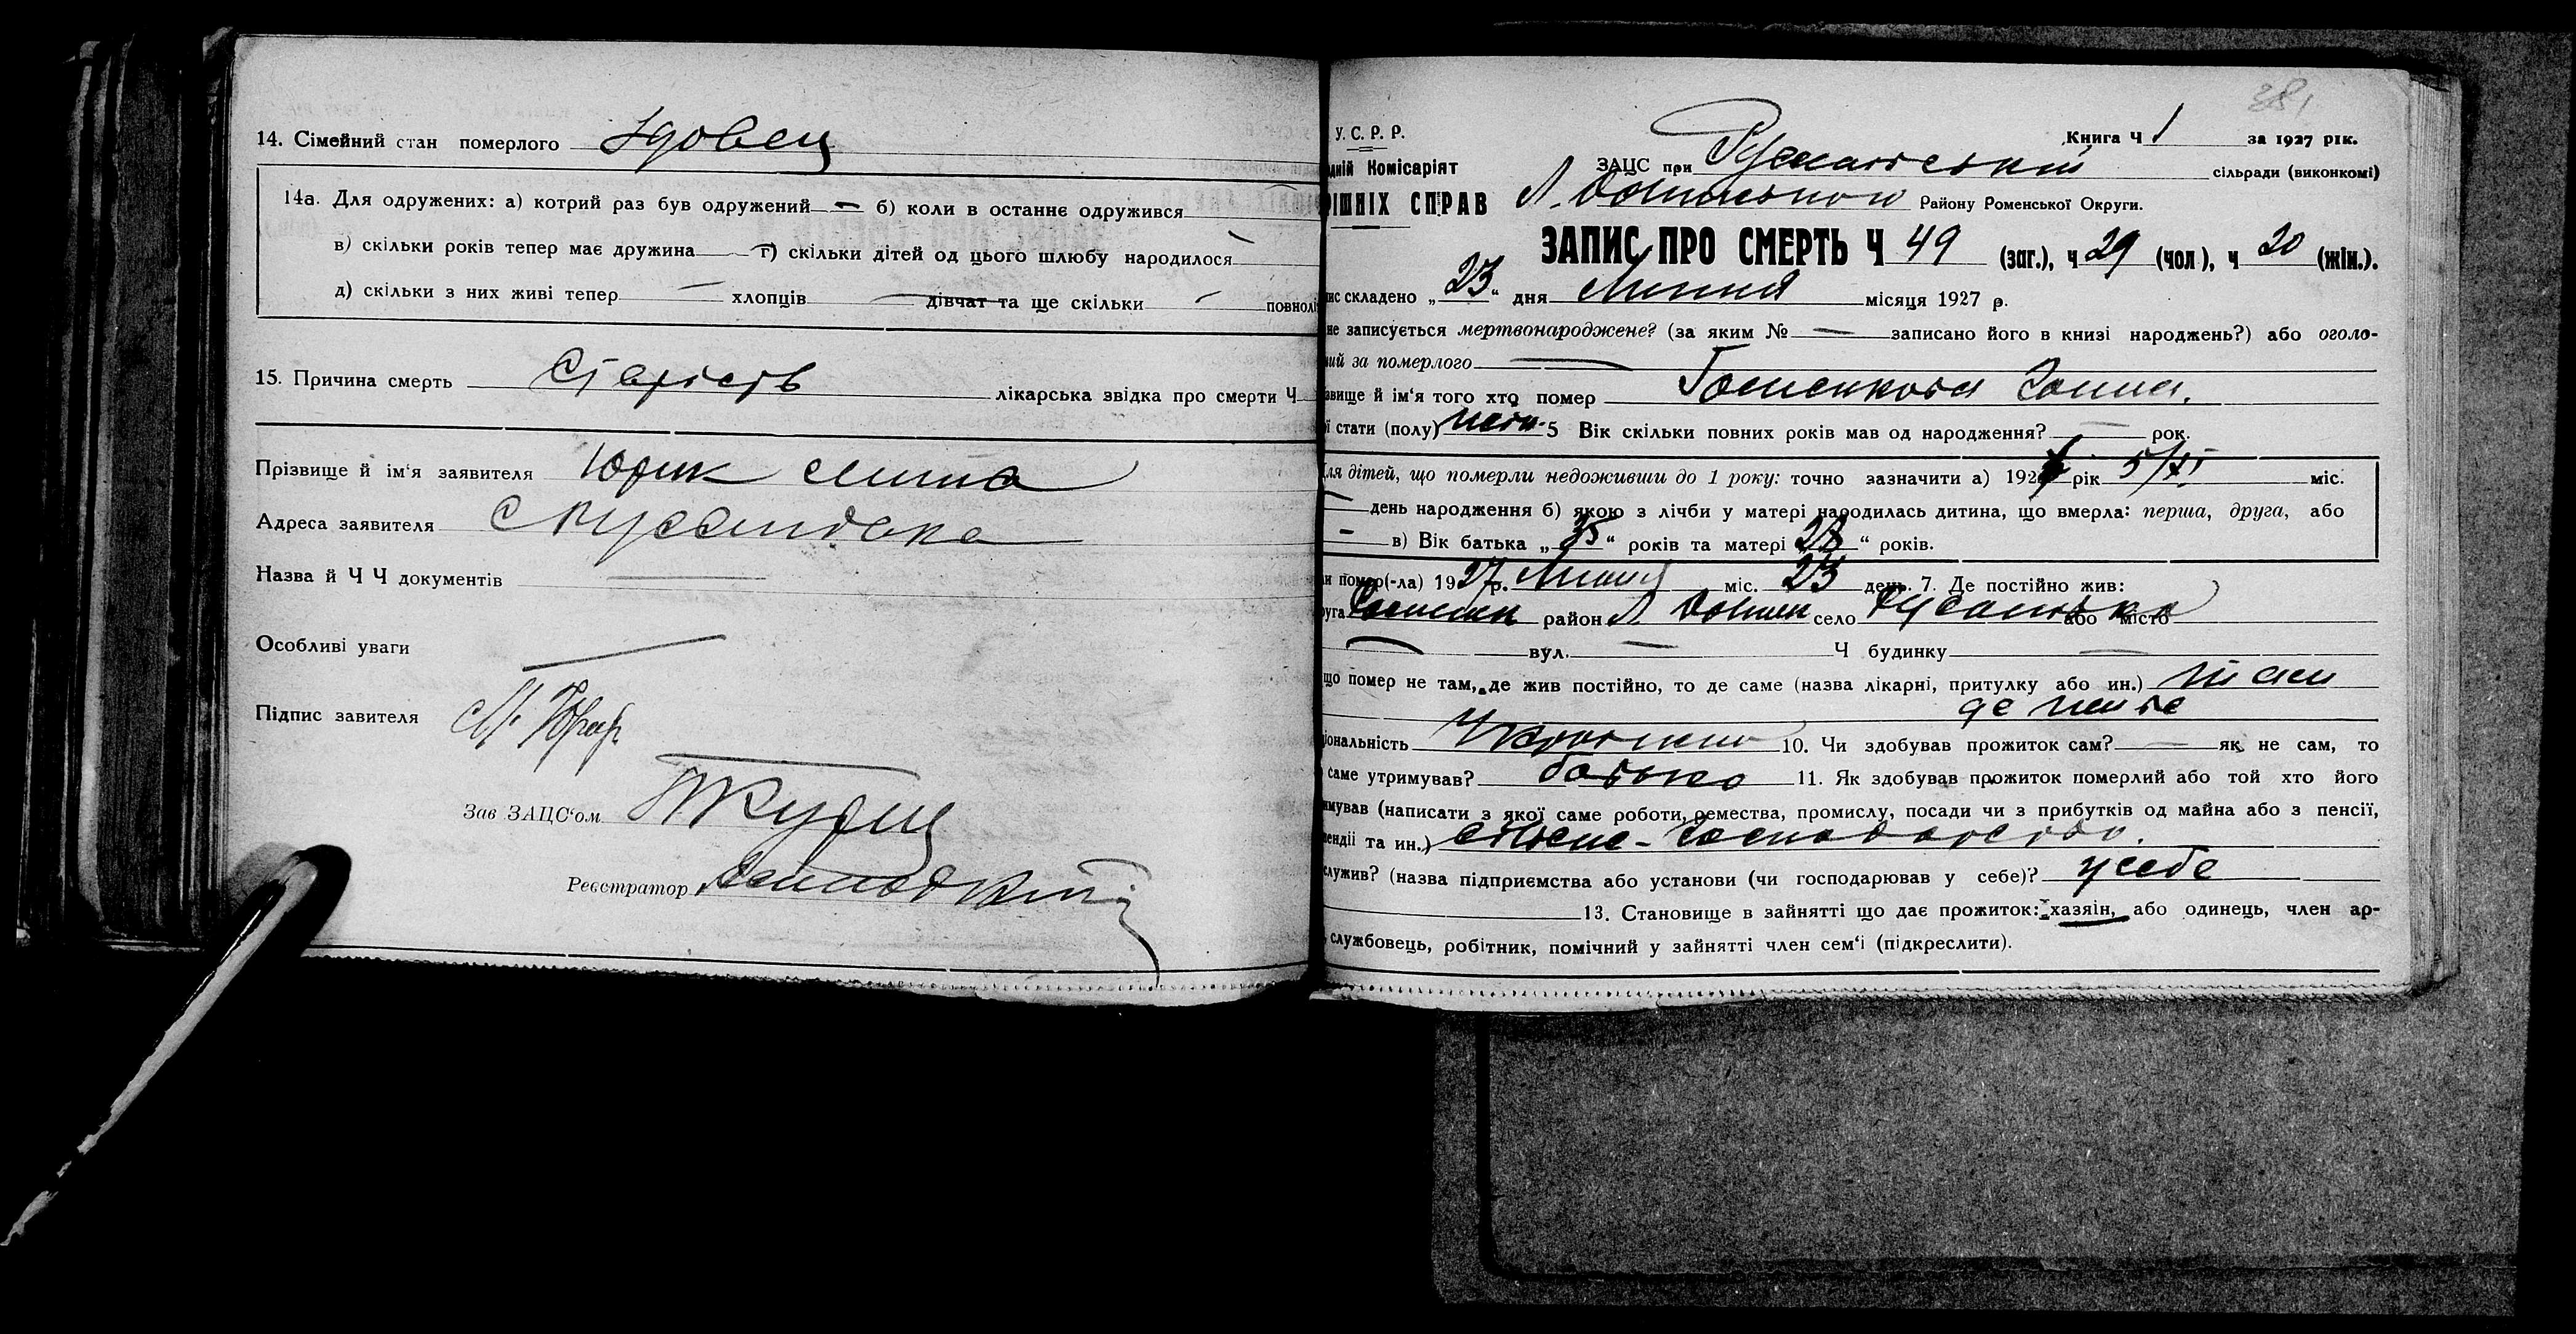 14. Сімейний стан померлого Удовец
14а. Для одружених: а) котрий раз був одружений — б) коли в останнє одружився
в) скільки років тепер має дружина — г) скільки дітей од цього шлюбу народилося —
д) скільки з них живі тепер — хлопців — дівчат та ще скільки — повнолі
15. Причина смерть Старість лікарська звідка про смерти Ч
Прізвище й ім'я заявителя Юрик
Адреса заявителя С Русанівка
Назва й Ч Ч документів —
Особливі уваги —
Підпис завителя
Зав ЗАЦС'ом
Реєстратор
381
У. С. Р. Р.
Книга Ч 1 за 1927 рік.
дній Комісаріят
ЗАЦС при Русанівській сільради (виконкомі)
РІШНІХ СПРАВ
Л. Району Роменської Округи.
ЗАПИС ПРО СМЕРТЬ Ч 49 (заг.), ч 29 (чол), ч 20 (жін.).
ис складено „23" дня Липня місяця 1927 р.
не записується мертвонароджене? (за яким № — записано його в книзі народжень?) або оголо-
ий за померлого —
звище й ім'я того хто помер
ї стати (полу) жін. 5 Вік скільки повних років мав од народження? — рок.
ля дітей, що померли недоживши до 1 року: точно зазначити а) 1926 рік 5/XI міс.
— день народження б) якою з лічби у матері народилась дитина, що вмерла: перша, друга, або
— в) Вік батька „35" років та матері 28" років.
и помер(-ла) 1927 р. Липня міс. 23 день. 7. Де постійно жив:
руга Роменск район Л. село Русанівка або місто
— вул. — Ч будинку —
що помер не там, де жив постійно, то де саме (назва лікарні, притулку або ин.) там
де живе
іональність Українка 10. Чи здобував прожиток сам? — як не сам, то
саме утримував? батько 11. Як здобував прожиток померлий або той хто його
имував (написати з якої саме роботи, ремества, промислу, посади чи з прибутків од майна або з пенсії,
пендії та ин.) сільске-господарство.
служив? (назва підприємства або установи (чи господарював у себе)? у себе
13. Становище в зайнятті що дає прожиток: хазяін, або одинець, член ар-
, службовець, робітник, помічний у зайнятті член сем'ї (підкреслити).